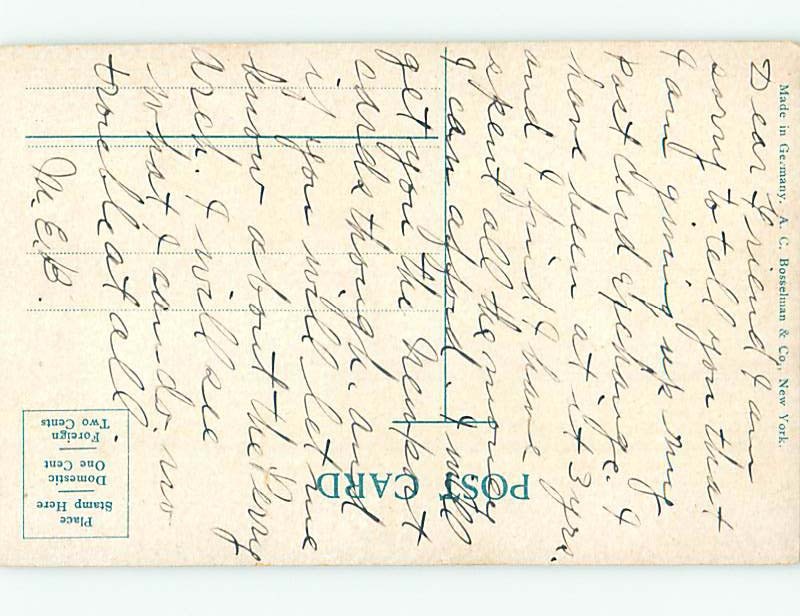 Dear Friend I am
sorry to tell you that
I am giving up my
post card exchange. I
have been at it 3 yrs.
and I find I have
spent all the money
I can afford. I will
get you the Newport
cards though. and
if you will let me
know about the Perry
Arch. I will see
what I can do. no
trouble at all
M.E.B.
Made in Germany. A. C. Bosselman & Co., New York.
POST CARD
Place
Stamp Here
Domestic
One Cent
Foreign
Two Cents